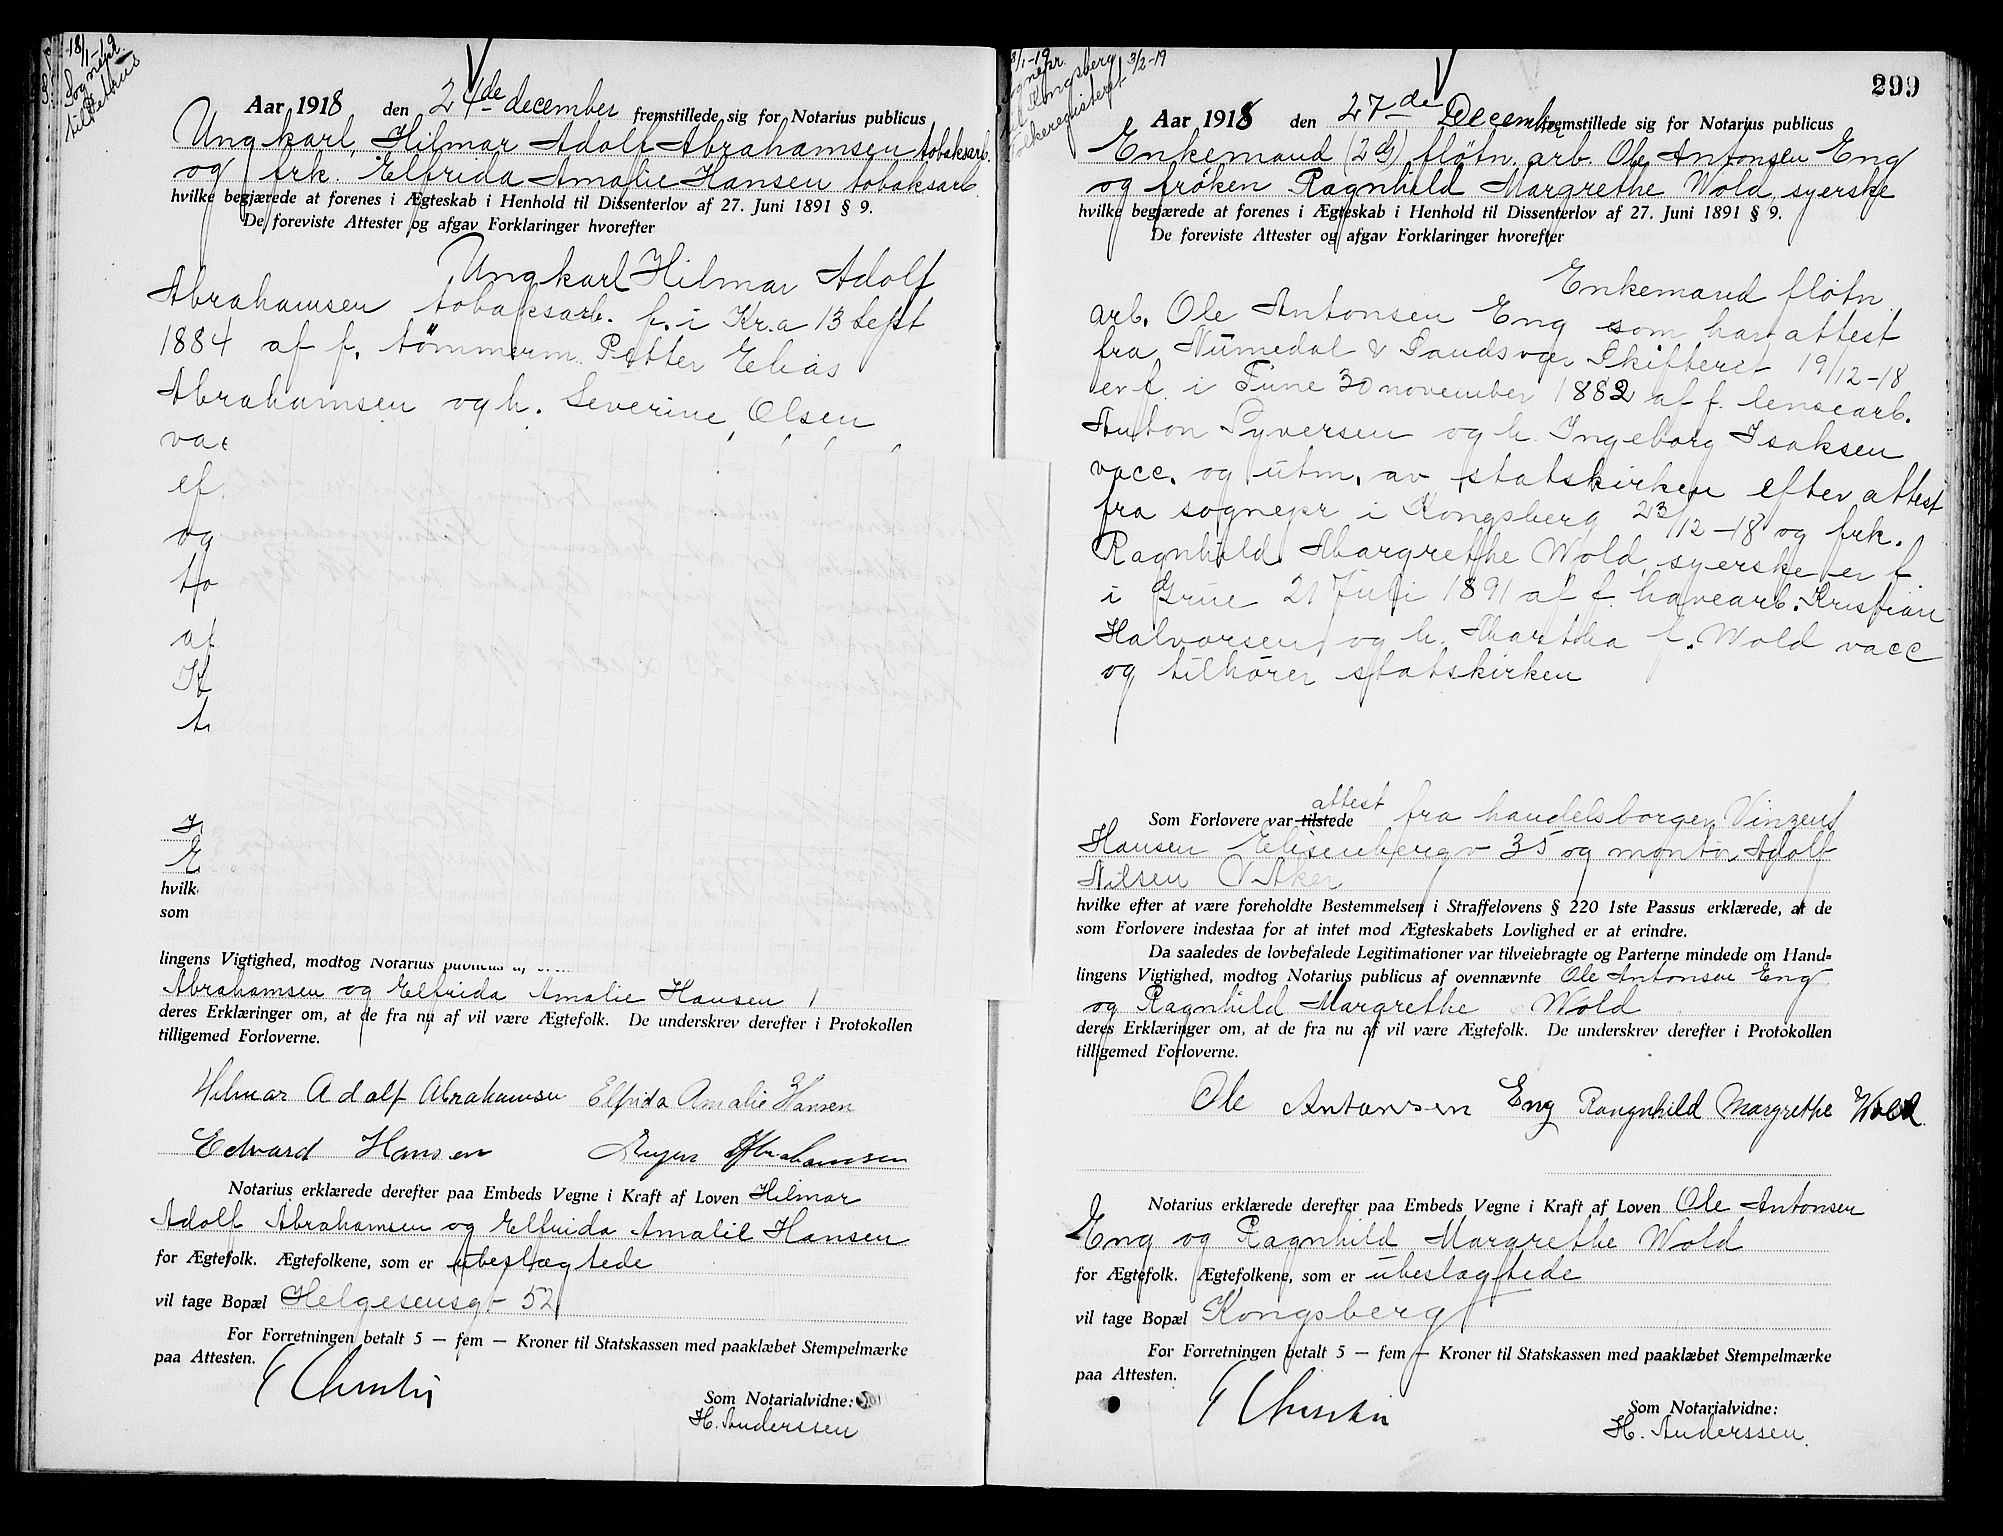 18/1-19
Sognepr.
til Petrus
Aar 1918 den 24de december fremstillede sig for Notarius publicus
Ungkarl, Hilmar Adolf Abrahamsen tobaksarb.
og frk. Elfrida Amalie Hansen tobaksarb
hvilke begjærede at forenes i Ægteskab i Henhold til Dissenterlov af 27. Juni 1891 § 9.
De foreviste Attester og afgav Forklaringer hvorefter
Ungkarl Hilmar Adolf
Abrahamsen tobaksarb. f. i Kr.a 13 Sept
1884 af f. tømmerm. Petter Elias
Abrahamsen og h. Severine Olsen
vac
ef
og
to
af
K
t
E
hvilk
som
lingens Vigtighed, modtog Notarius publicus af
Abrahamsen og Elfrida Amalie Hansen
deres Erklæringer om, at de fra nu af vil være Ægtefolk. De underskrev derefter i Protokollen
tilligemed Forloverne.
Hilmar Adolf Abrahamsen Elfrida Amalie Hansen
Edvard Hansen Abrahamsen
Notarius erklærede derefter paa Embeds Vegne i Kraft af Loven Hilmar
Adolf Abrahamsen og Elfrida Amalie Hansen
for Ægtefolk. Ægtefolkene, som er ubeslægtede
vil tage Bopæl Helgesensgt 52
For Forretningen betalt 5 — fem — Kroner til Statskassen med paaklæbet Stempelmærke
paa Attesten.
Som Notarialvidne:
H. Anderssen
299
8/1-19
Sognepr.
til Kongsberg
Folkeregisteret 3/2-19
Aar 1918 den 27de December fremstillede sig for Notarius publicus
Enkemand (2 g) fløtn. arb. Ole Antonsen Eng
og frøken Ragnhild Margrethe Wold, syerske
hvilke begjærede at forenes i Ægteskab i Henhold til Dissenterlov af 27. Juni 1891 § 9.
De foreviste Attester og afgav Forklaringer hvorefter
Enkemand fløtn.
arb. Ole Antonsen Eng som har attest
fra Numedal & Sandsvær Skifteret 19/12-18
er f. i Tune 30 november 1882 af f. lensearb.
Anton Syversen og h. Ingeborg Isaksen
vacc. og utm. av statskirken efter attest
fra sognepr i Kongsberg 23/12-18 og frk.
Ragnhild Margrethe Wold, syerske er f.
i Grue 21 Juli 1891 af f. havearb. Kristian
Halvorsen og h. Martha f. Wold vacc
og tilhører statskirken
attest
Som Forlovere var tilstede fra handelsborger Vinzens
Hansen Elisenbergv 35 og montør Adolf
Nilsen V. Aker
hvilke efter at være foreholdte Bestemmelsen i Straffelovens § 220 1ste Passus erklærede, at de
som Forlovere indestaa for at intet mod Ægteskabets Lovlighed er at erindre.
Da saaledes de lovbefalede Legitimationer var tilveiebragte og Parterne mindede om Hand-
lingens Vigtighed, modtog Notarius publicus af ovennævnte Ole Antonsen Eng
og Ragnhild Margrethe Wold
deres Erklæringer om, at de fra nu af vil være Ægtefolk. De underskrev derefter i Protokollen
tilligemed Forloverne.
Ole Antonsen Eng Rangnhild Margrethe Wold
Notarius erklærede derefter paa Embeds Vegne i Kraft af Loven Ole Antonsen
Eng og Ragnhild Margrethe Wold
for Ægtefolk. Ægtefolkene, som er ubeslægtede
vil tage Bopæl Kongsberg
For Forretningen betalt 5 — fem — Kroner til Statskassen med paaklæbet Stempelmærke
paa Attesten.
Som Notarialvidne:
H. Anderssen.